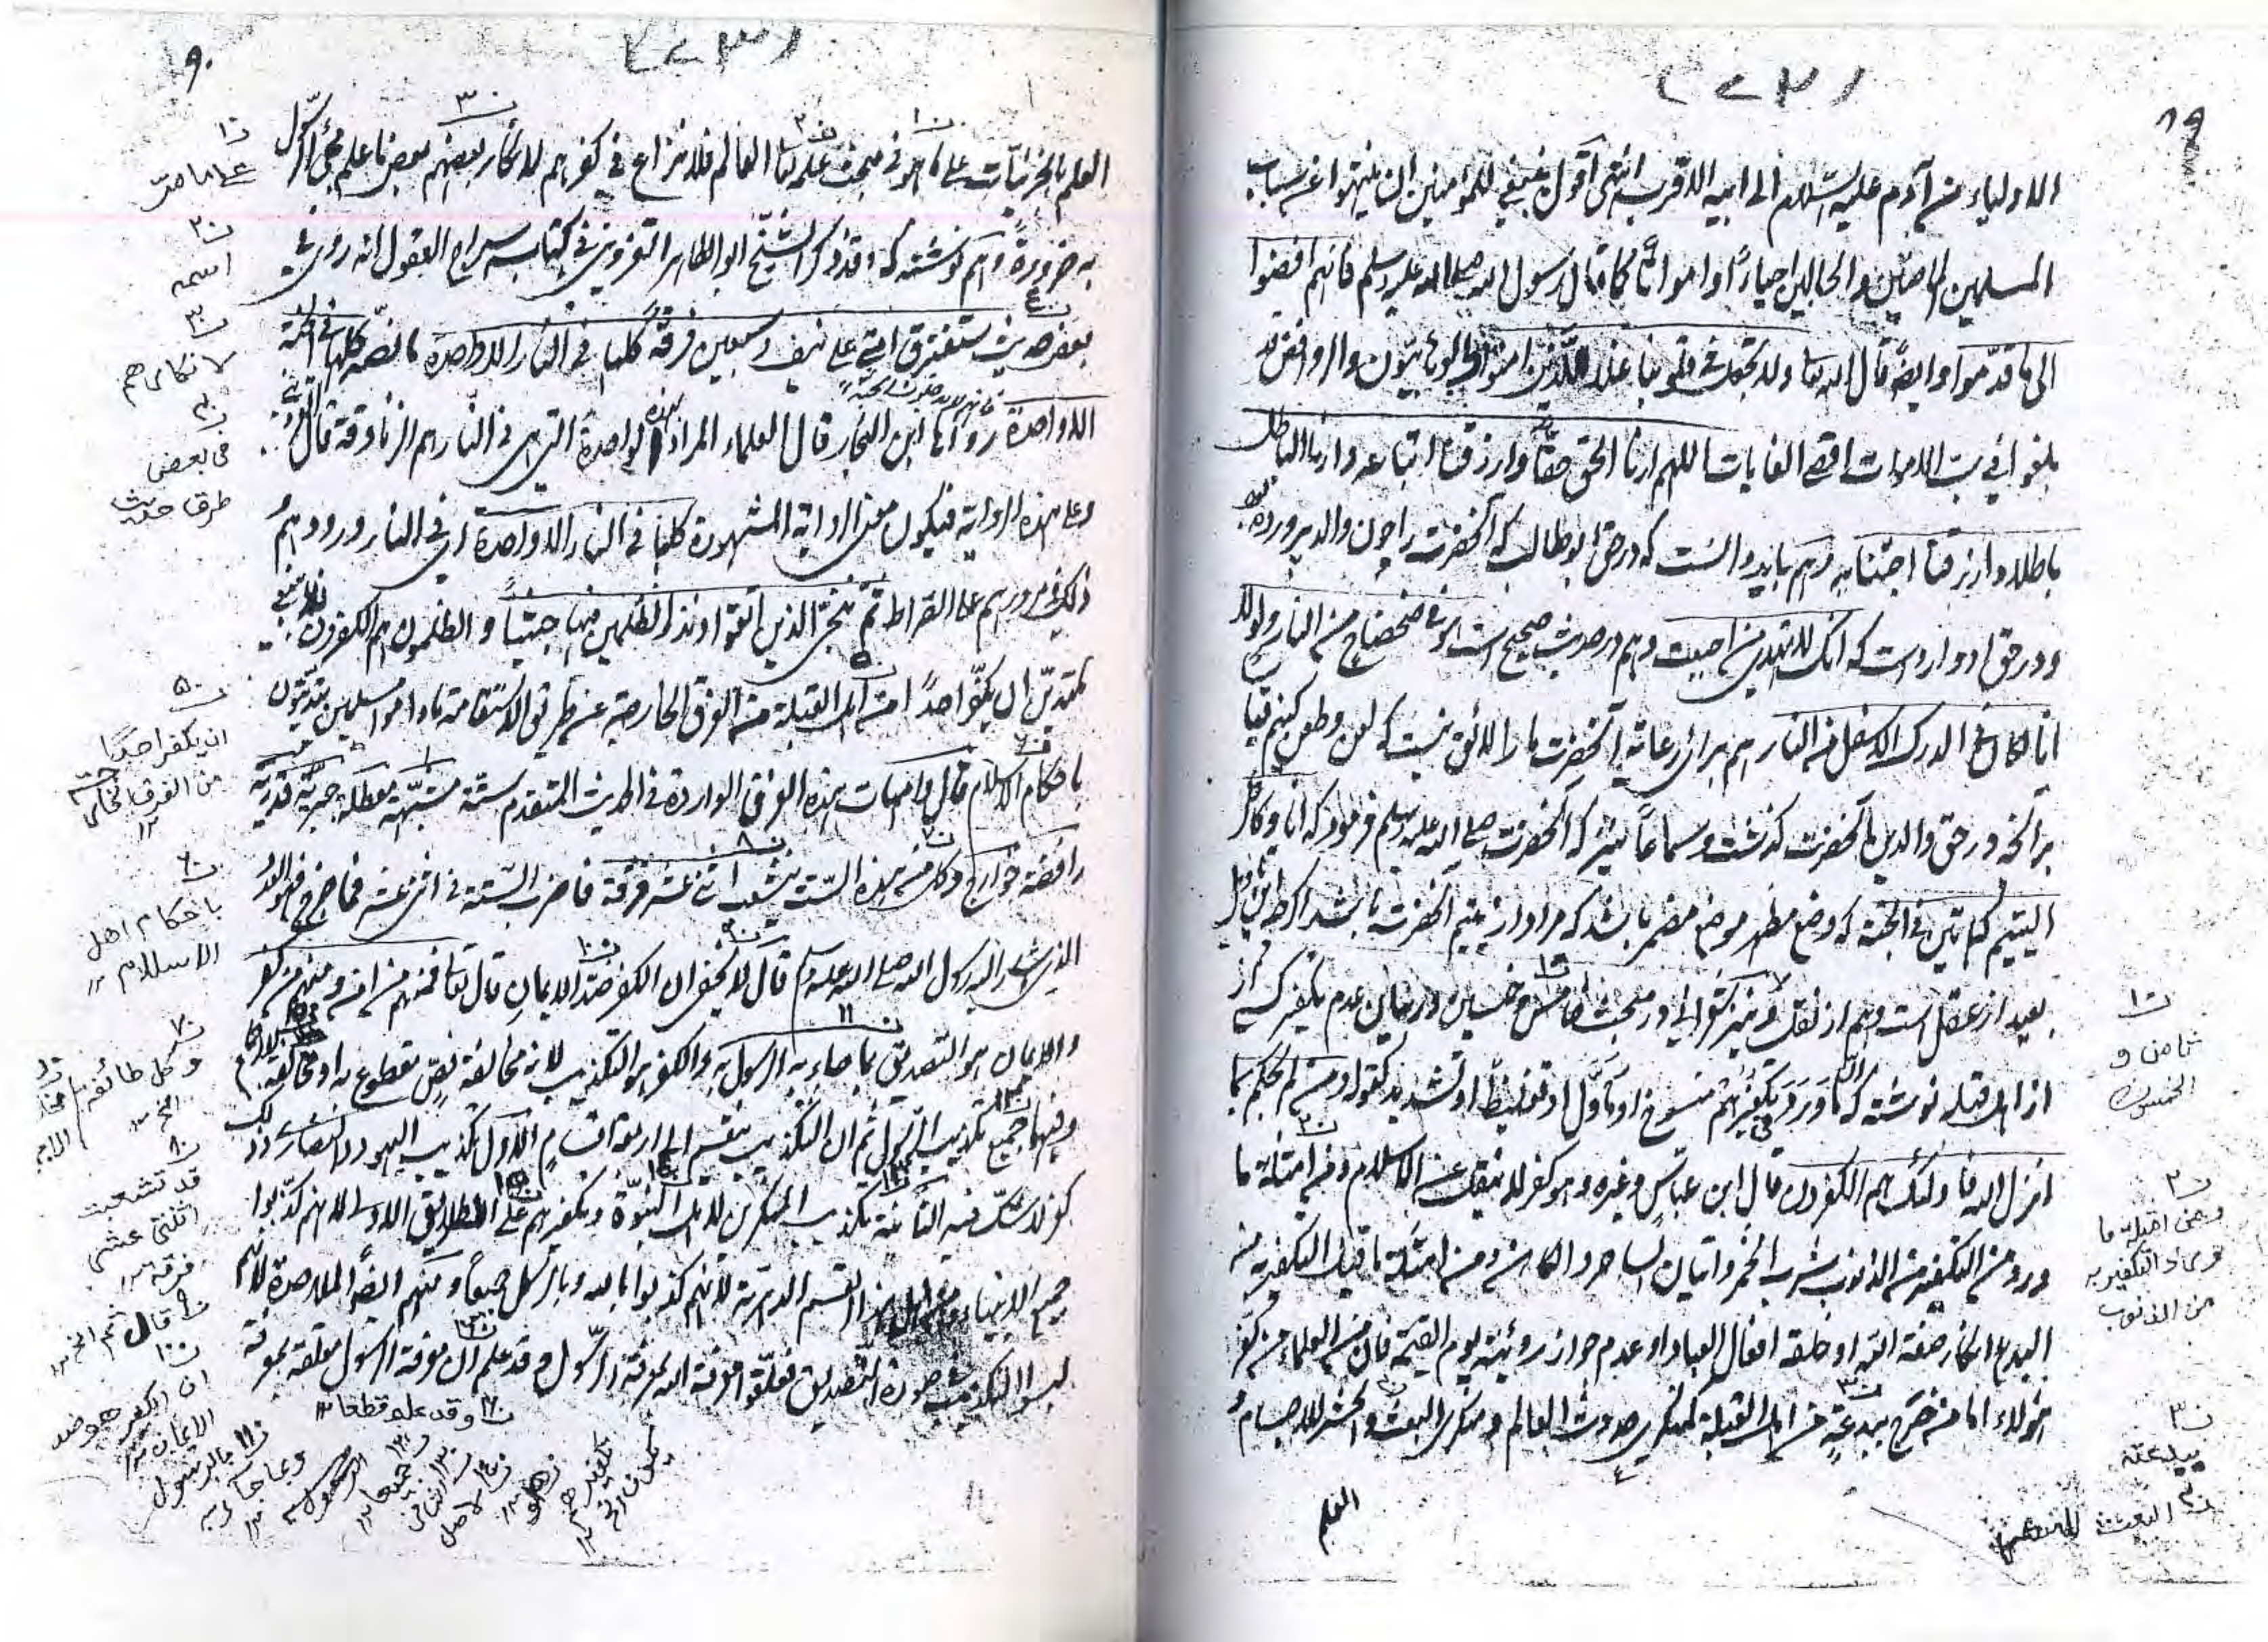 (٢٧٢)
٨٩
الاولياء من آدم عليه السلام الى ابيه الاقرب انتهى اقول ينبغي للمؤمنين ان ينتهوا عن سباب
المسلمين الماضين والحالين احياءً او امواتاً كما قال رسول الله صلى الله عليه وسلم فانهم افضوا
الى ما قدّموا وايضاً قال الله تعالى ولا تجعل في قلوبنا غلا للذين امنوا والوهابيون والروافض قد
بلغوا في سب الاموات اقصى الغايات اللهم ارنا الحق حقاً وارزقنا اتباعه وارنا الباطل
باطلا وارزقنا اجتنابه وهم بايد دانست كه در حق ابوطالب كه آنحضرت را چون والد پرورده بود
ودر حق او وارد است كه انك لا تهدي من احببت وهم در حديث صحيح است هو في ضحضاح من النار ولولا
انا لكان في الدرك الاسفل من النار هم براى رعايه آنحضرت مارا لائق نيست كه لعن وطعن كنيم قياساً
بر آنچه در حق والدين آنحضرت گذشت وسماعاً نيز كه آنحضرت صلى الله عليه وسلم فرمود كه انا وكافل
اليتيم كهاتين في الجنة كه وضع مظهر موضع مضمر باشد كه مراد از يتيم آنحضرت باشد
بعيد از عقل است وهم از نقل ونيز شعراني در مبحث خامس وخمسين در بيان عدم تكفير كسى از
از اهل قبله نوشته كه ما ورد في تكفيرهم منسوخ او مأوّل او تغليظاً او تشديد كقوله ومن لم يحكم بما
انزل الله فاولئك هم الكفرون قال ابن عباس وغيره وهو كفر لا ينقل عن الاسلام ومن امثلة ما
ورد من التكفير من الذنوب شرب الخمر واتيان الساحر والكاهن ومن امثلة ما قيل التكفير به من
البدع انكار صفة الله او خلقه افعال العباد او عدم جواز رؤيته يوم القيمة فان من العلماء من كفّر
هؤلاء اما من خرج ببدعته من اهل القبلة كمنكري حدوث العالم ومنكري البعث والحشر للاجسام و
العلم
ن١
ثامن و
الخمسون
ن٢
ومن امثلة ما
ورد التكفير به
من الذنوب
ن٣
ببدعته
ن٤ البعث
(٢٧٣)
٩٠
العلم بالجزئيات على ما هو في مبحث علمه تعالى العالم فلا نزاع في كفرهم لانكار بعضهم بعض ما علم مجئ الرسل
به ضرورةً وهم نوشته كه وقد ذكر الشيخ ابو الطاهر القزويني في كتابه سراج العقول انه روي في
بعض حديث ستفترق امتي على نيف وسبعين فرقة كلها في النار الا واحدة ما نصه كلها في الجنة
الا واحدة رواها ابن النجار قال العلماء المراد بهذه الواحدة التي هي في النار هم الزنادقة قال القزويني
وعلى هذه الرواية فيكون معنى الرواية المشهورة كلها في النار الا واحدة اى في النار ورودهم و
ذلك مرورهم على الصراط ثم ننجي الذين اتقوا ونذر الظلمين فيها جثياً والظلمون هم الكفرون فلا ينبغي
لمتديّن ان يكفّر احداً من اهل القبلة من الفرق الخارجة عن طريق الاستقامة ما داموا مسلمين يتدينون
باحكام الاسلام قال وامهات هذه الفرق الواردة في الحديث المتقدم ستة مشبّهة معطلة جبرية قدرية
رافضة خوارج وكل من هذه الستة تشعب اثنى عشر فرقة فاضرب الستة في اثنى عشر فما خرج فهو العدد
الذي اشار اليه رسول الله صلى الله عليه وسلم قال لا يخفى ان الكفر ضد الايمان قال تعالى فمنهم من امن ومنهم من كفر
والايمان هو التصديق بما جاء به الرسول به والكفر هو التكذيب لانه مخالفة لنص مقطوع به او مخالفة الاجماع
وفيهما جميع تكذيب الرسول ثم ان التكذيب ينقسم الى اربعة اقسام الاول تكذيب اليهود والنصارى وذلك
كفر لا شك فيه الثانية تكذيب المنكرين لاهل النبوة وتكفيرهم على الطريق الاولى لانهم كذّبوا
جميع الانبياء هذا القسم الدهرية لانهم كذبوا بالله وبالرسل جميعاً ومنهم ايضاً الملاحدة لانهم
لبسوا التكذيب صورة التصديق فعلّقوا معرفة الله بمعرفة الرسول وقد علم ان معرفة الرسول معلقة بمعرفة
ن١
على ما مر
ن٢
اسمه
ن٣
لانكارهم
ن٤
في بعض
طرق حديث
ن٥
ان يكفر احداً
من الفرق الخارجة
ن٦
باحكام اهل
الاسلام
ن٧
وكل طائفة
الخ
ن٨
قد تشعبت
اثنتى عشر
فرقة
ن٩ قال ثم الخ
ن١٠
ان الكفر هو ضد
الايمان
ن١١ بالرسول
وبما جاء به
ن١٢ جميعا
ن١٣ الثاني
ن١٤ لاصل
تكفيرهم
ن وقد علم قطعا